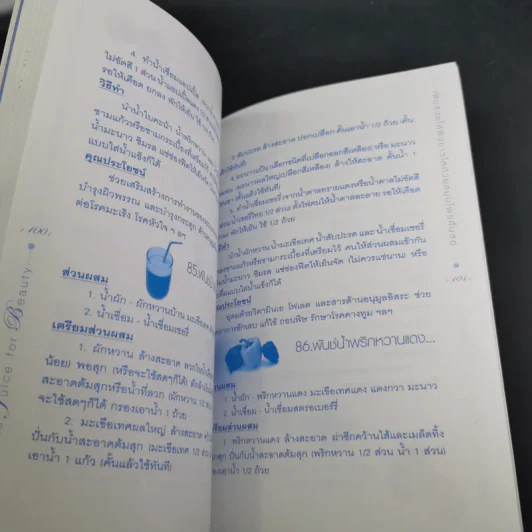 4. ทำน้ำเชื่อมแอปเปิ้ล
ไม่ขัดสี 1 ส่วน
รอให้เดือด ยกลง พักให้เย็น ใช้
วิธีทำ
นำน้ำใบคะน้า น้ำพริกหวาน
ชามแก้วหรือชามกระเบื้องที่เตรียมไว้
น้ำมะนาว ชิมรส แช่ช่องฟิตให้เย็นจัด
แบบใส่น้ำแข็งก็ได้
คุณประโยชน์
ช่วยเสริมสร้างการทำงานของ
บำรุงผิวพรรณ และบำรุงกระดูก ต้าน
ต่อโรคมะเร็ง โรคหัวใจ ฯลฯ
85.พันช์
ส่วนผสม
1. น้ำผัก - ผักหวานบ้าน มะเขือเทศ
2. น้ำเชื่อม - น้ำเชื่อมเชอรี่
เตรียมส่วนผสม
1. ผักหวาน ล้างสะอาด
น้อย) พอสุก (หรือจะใช้สดๆก็ได้)
สะอาดต้มสุกหรือน้ำที่ลวก (ผักหวาน 1/2 ส่วน
จะใช้สดๆก็ได้ กรองเอาน้ำ 1 ถ้วย
2. มะเขือเทศผลใหญ่ ล้างสะอาด
ปั่นกับน้ำสะอาดต้มสุก (มะเขือเทศ 1/2
เอาน้ำ 1 แก้ว (คั้นแล้วใช้ทันที)
100
Juice for Beauty
3. สับปะรด ล้างสะอาด ปอกเปลือก คั้นเอาน้ำ 1/2 ถ้วย (คั้น
(เลือกชนิดที่เปลือกออกสีเหลือง) หรือ มะนาว
(เปลือกสีเหลือง) ล้างให้สะอาด คั้นน้ำ 1
(คั้นแล้วใช้ทันที)
5. ทำน้ำเชื่อมเชอรี่จากน้ำตาลทรายแดงหรือน้ำตาลไม่ขัดสี
1/2 ส่วน) ตั้งไฟคนให้น้ำตาลละลาย รอให้เดือด
ยกลง พักให้เย็น ใช้ 1/2 ถ้วย
นำน้ำผักหวาน น้ำมะเขือเทศ น้ำสับปะรด และ น้ำเชื่อมเชอรี่
ชามแก้วหรือชามกระเบื้องที่เตรียมไว้ คนให้ส่วนผสมเข้ากัน
น้ำมะนาว ชิมรส แช่ช่องฟิตให้เย็นจัด (ไม่ควรแช่นาน) หรือ
ดื่มแบบใส่น้ำแข็งก็ได้
คุณประโยชน์
อุดมด้วยวิตามินเอ โฟเลต และสารต้านอนุมูลอิสระ ช่วย
แก้ไข้ ถอนพิษ รักษาโรคคางทูม ฯลฯ
86.พันช์น้ำพริกหวานแดง...
ส่วนผสม
1. น้ำผัก - พริกหวานแดง มะเขือเทศแดง แตงกวา มะนาว
2. น้ำเชื่อม - น้ำเชื่อมสตรอเบอร์รี่
เตรียมส่วนผสม
1. พริกหวานแดง ล้างสะอาด ผ่าซีกคว้านไส้และเมล็ดทิ้ง
ปั่นกับน้ำสะอาดต้มสุก (พริกหวาน 1/2 ส่วน น้ำ 1 ส่วน)
กรองเอาน้ำ 1/2 ถ้วย
101